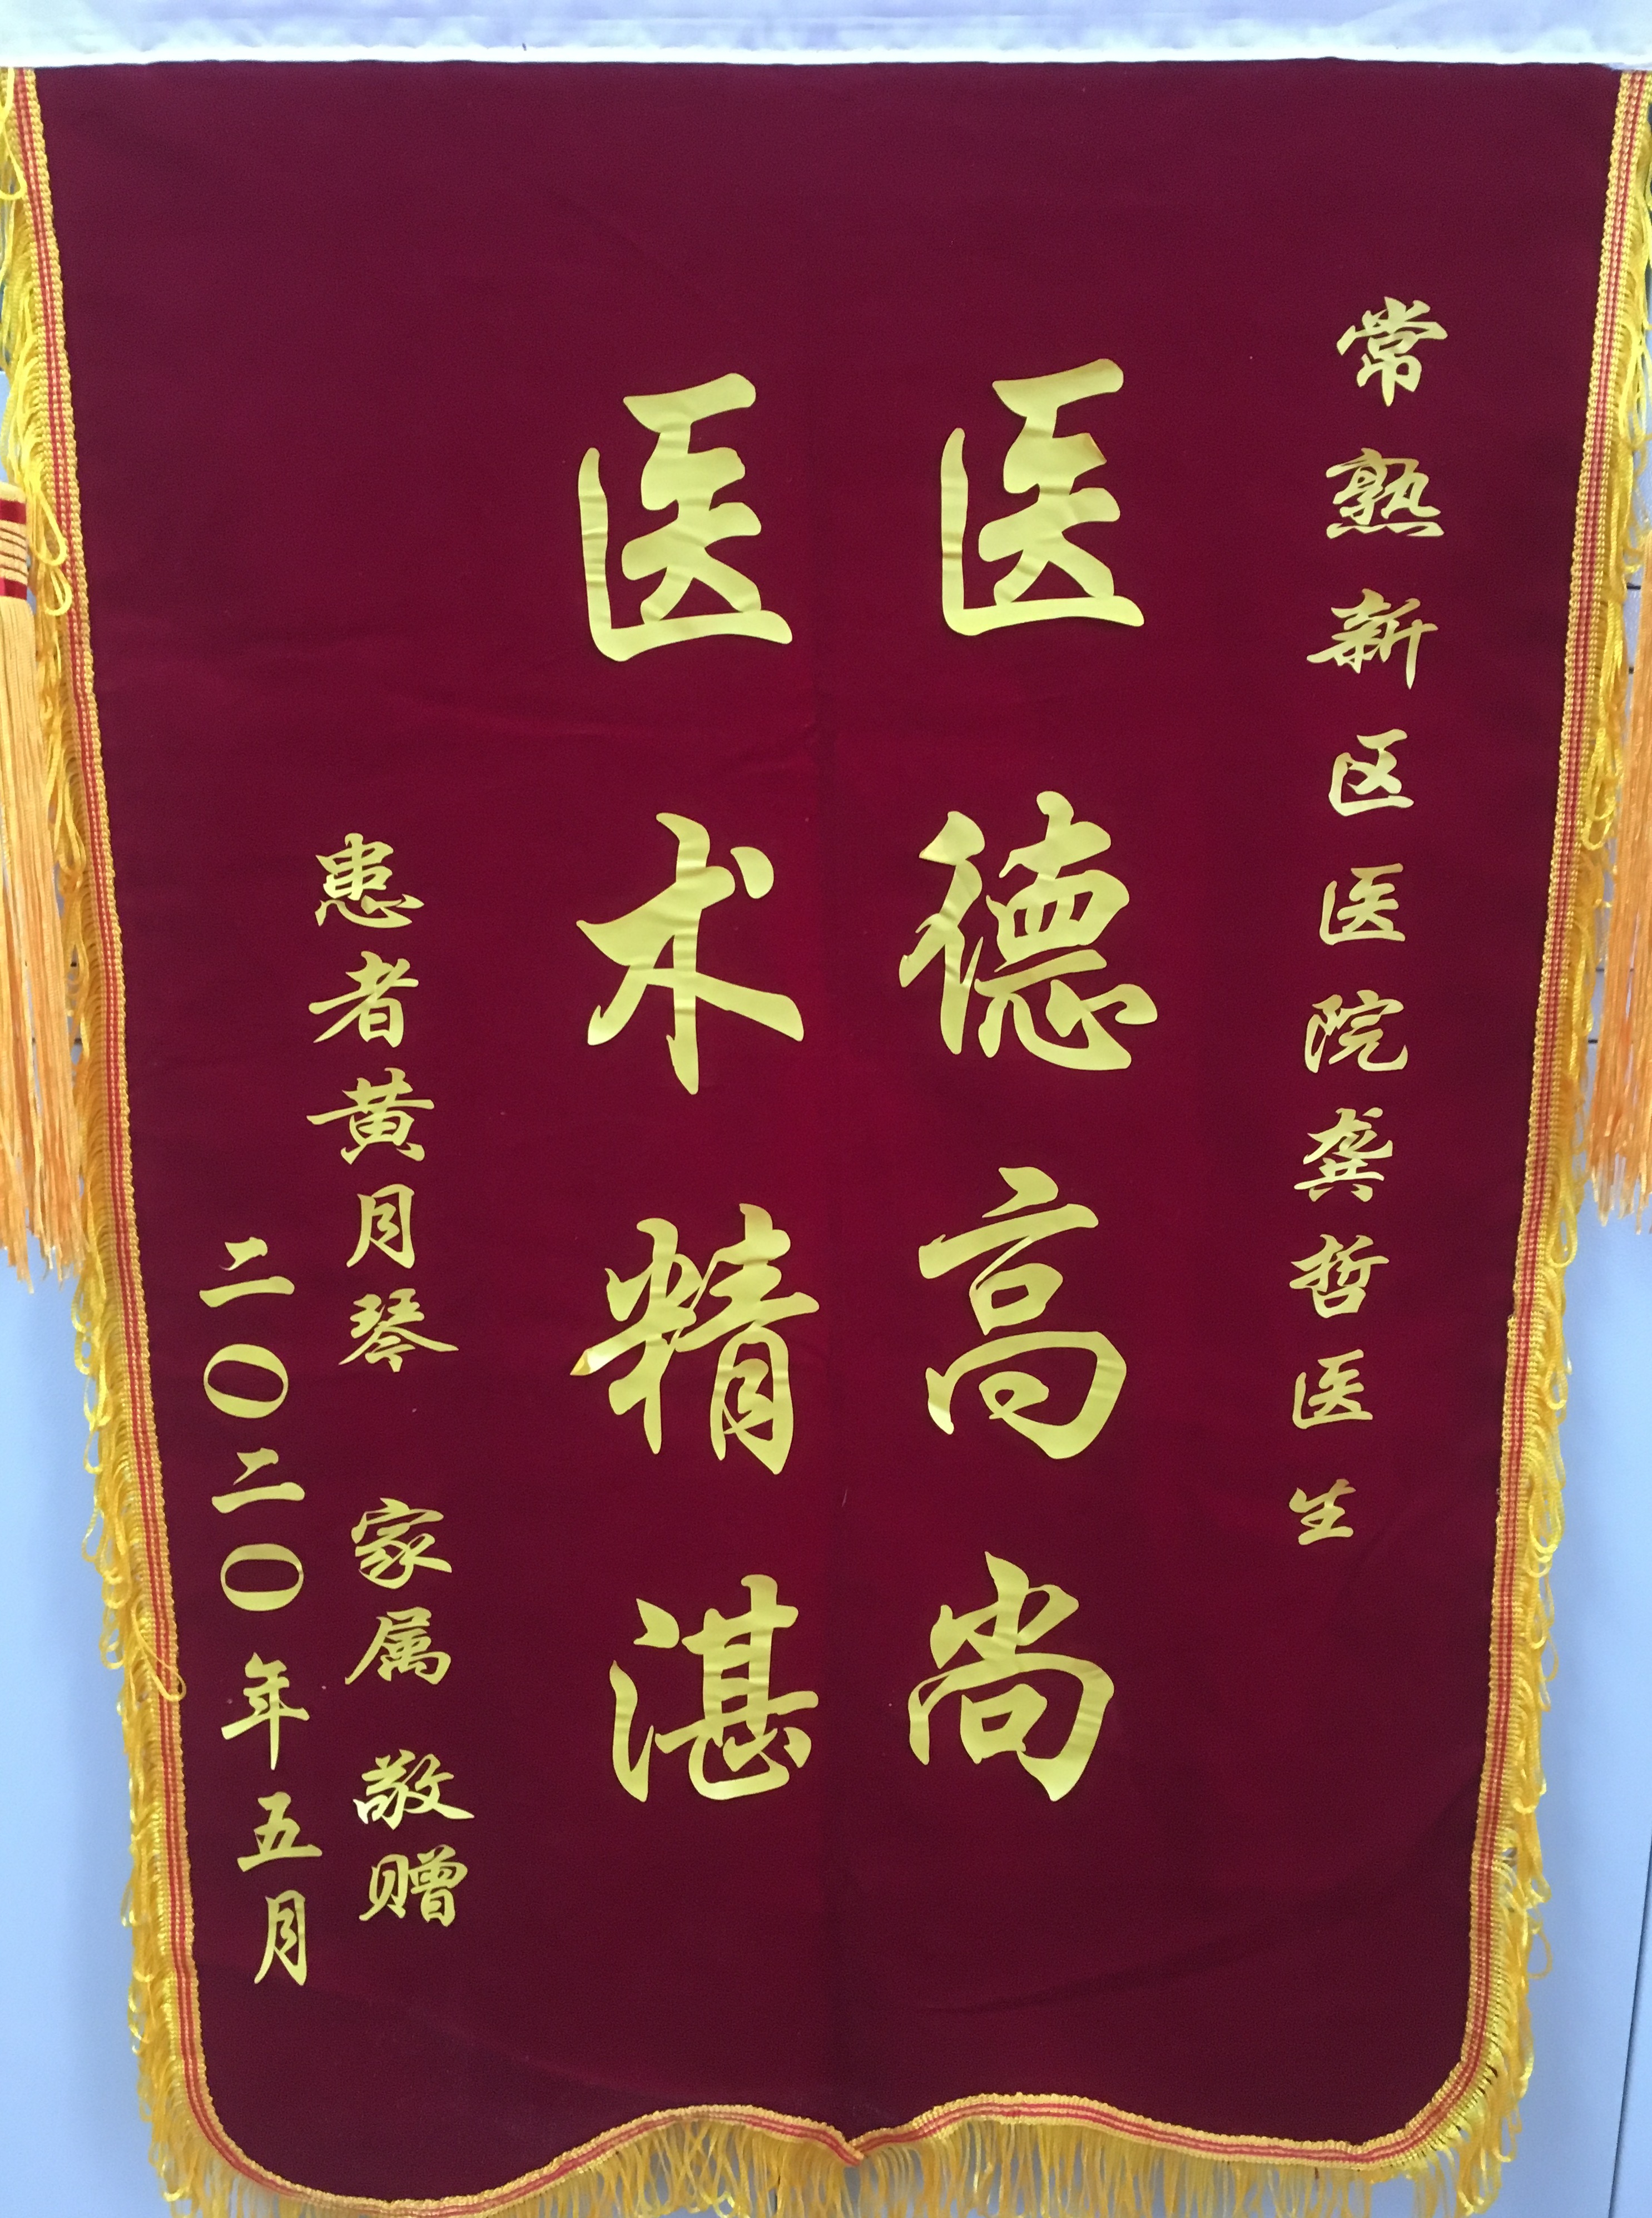 常熟新区医院龚哲医生
医德高尚
医术精湛
患者黄月琴 家属 敬赠
二〇二〇年五月